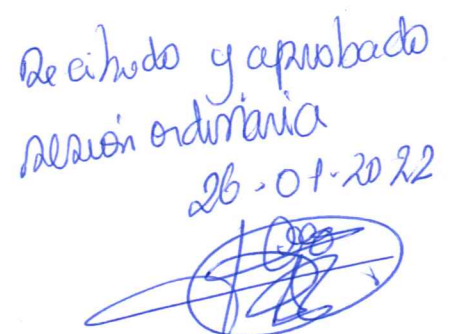 Recibido y aprobado
sesión ordinaria
26-01-2022